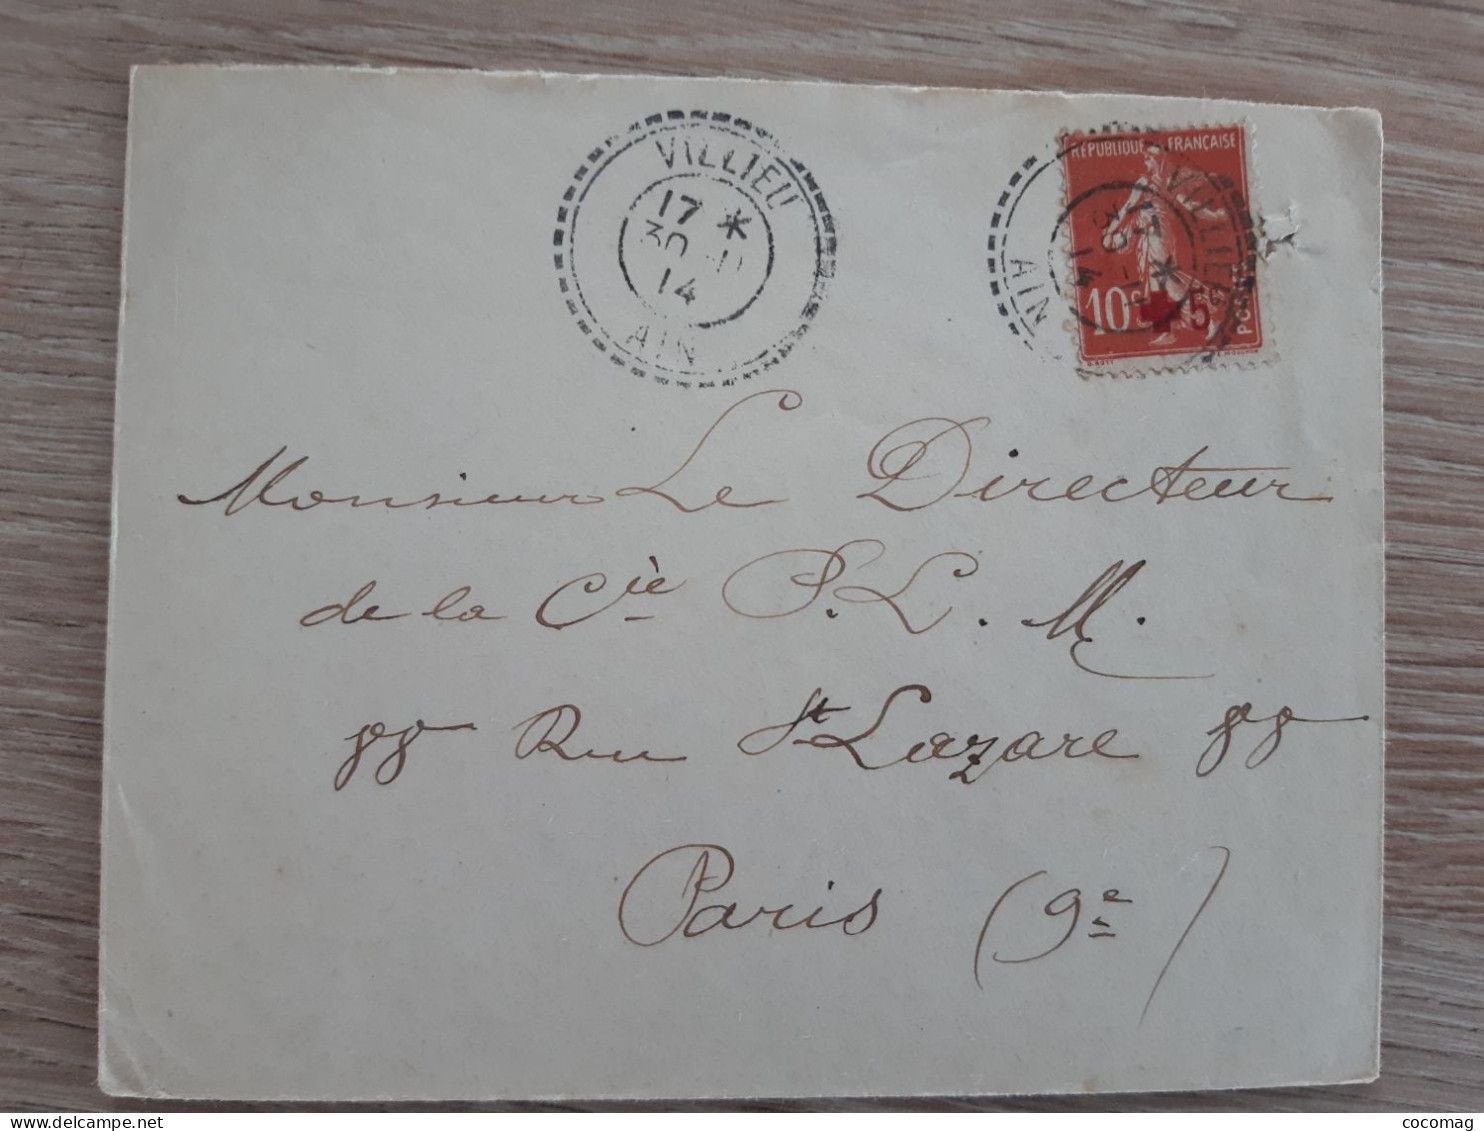 VILLIEU
17 *
30 - 11
14
AIN
RÉPUBLIQUE FRANÇAISE
VILLIEU
17 *
30 - 11
14
AIN
10c + 5
POSTES
Monsieur Le Directeur
de la Cie P. L. M.
88 Rue St Lazare 88
Paris (9e)
cocomag